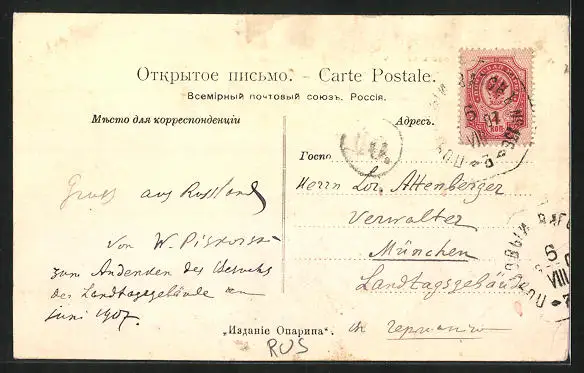 Открытое письмо. – Carte Postale.
Всемірный почтовый союзъ. Россія.
Мѣсто для корреспонденціи
Адресъ.
Госпо
Gruss aus Russland
von W. Piskorski
zum Andenken des Besuchs
des Landtagsgebäude
Juni 1907.
Herrn Lor. Attenberger
Verwalter
München
Landtagsgebäude
Германію
„Изданіе Опарина".
RUS
ПОЧТОВЫЙ ВАГ
6
VIII